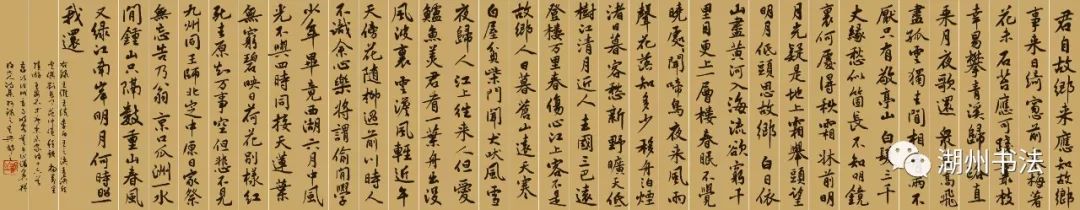 君自故鄉来應知故鄉
事来日綺窓前寒梅著
花未石苔應可踐叢枝
幸易攀青溪歸路直
乘月夜歌還 衆鳥高飛
盡孤雲獨去閒相看兩不
厭只有敬亭山 白髮三千
丈緣愁似箇長不知明鏡
裏何處得秋霜 牀前明
月光疑是地上霜舉頭望
明月低頭思故鄉 白日依
山盡黄河入海流欲窮千
里目更上一層樓 春眠不覺
曉處處聞啼鳥夜来風雨
聲花落知多少 移舟泊煙
渚日暮客愁新野曠天低
樹江清月近人 去國三巴遠
登樓万里春傷心江上客不是
故鄉人 日暮蒼山遠天寒
白屋貧柴門聞犬吠風雪
夜歸人 江上往来人但愛
鱸魚美君看一葉舟出没
風波裏 雲淡風輕近午
天傍花随柳過前川時人
不識余心樂將謂偷閒學
少年 畢竟西湖六月中風
光不與四時同接天蓮葉
無窮碧映日荷花别樣紅
死去原知万事空但悲不見
九州同王師北定中原日家祭
無忘告乃翁 京口瓜洲一水
間鍾山只隔數重山春風
又綠江南岸明月何時照
我還
湖州书法